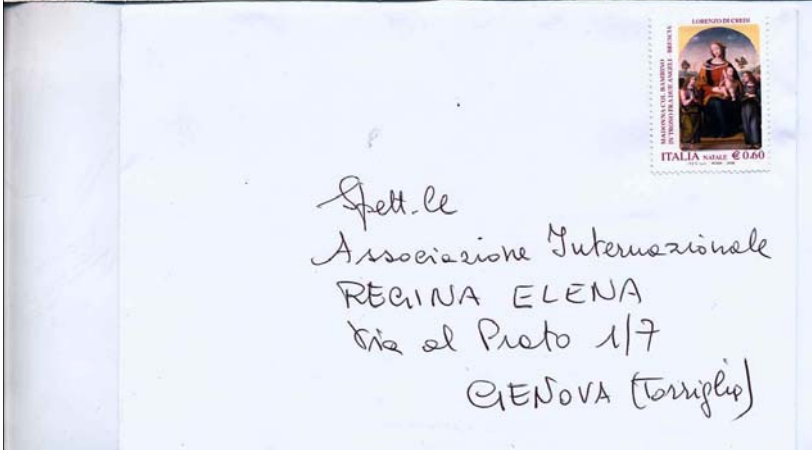 LORENZO DI CREDI
MADONNA COL BAMBINO
IN TRONO FRA DUE ANGELI - BRESCIA
ITALIA NATALE € 0.60
Spett.le
Associazione Internazionale
REGINA ELENA
Via al Prato 1/7
GENOVA (Torriglia)